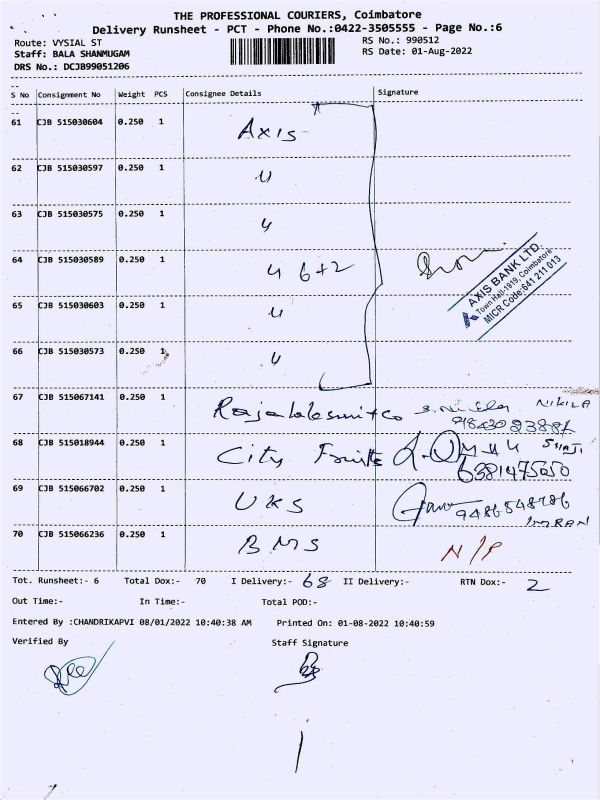 THE PROFESSIONAL COURIERS, Coimbatore
Delivery Runsheet - PCT - Phone No.:0422-3505555 - Page No.:6
Route: VYSIAL ST RS No.: 990512
Staff: BALA SHANMUGAM RS Date: 01-Aug-2022
DRS No.: DCJB99051206
S No Consignment No Weight PCS Consignee Details Signature
61 CJB 515030604 0.250 1 Axis
62 CJB 515030597 0.250 1 "
63 CJB 515030575 0.250 1 "
64 CJB 515030589 0.250 1 " 6+2
AXIS BANK LTD.
Town Hall-1919, Coimbatore
MICR Code:641 211 013
65 CJB 515030603 0.250 1 "
66 CJB 515030573 0.250 1 "
67 CJB 515067141 0.250 1
68 CJB 515018944 0.250 1 City Fruits 6381475050
69 CJB 515066702 0.250 1 UKS 9486548786
IMRAN
70 CJB 515066236 0.250 1 BMS N/P
Tot. Runsheet:- 6 Total Dox:- 70 I Delivery:- 68 II Delivery:- RTN Dox:- 2
Out Time:- In Time:- Total POD:-
Entered By :CHANDRIKAPVI 08/01/2022 10:40:38 AM Printed On: 01-08-2022 10:40:59
Verified By Staff Signature